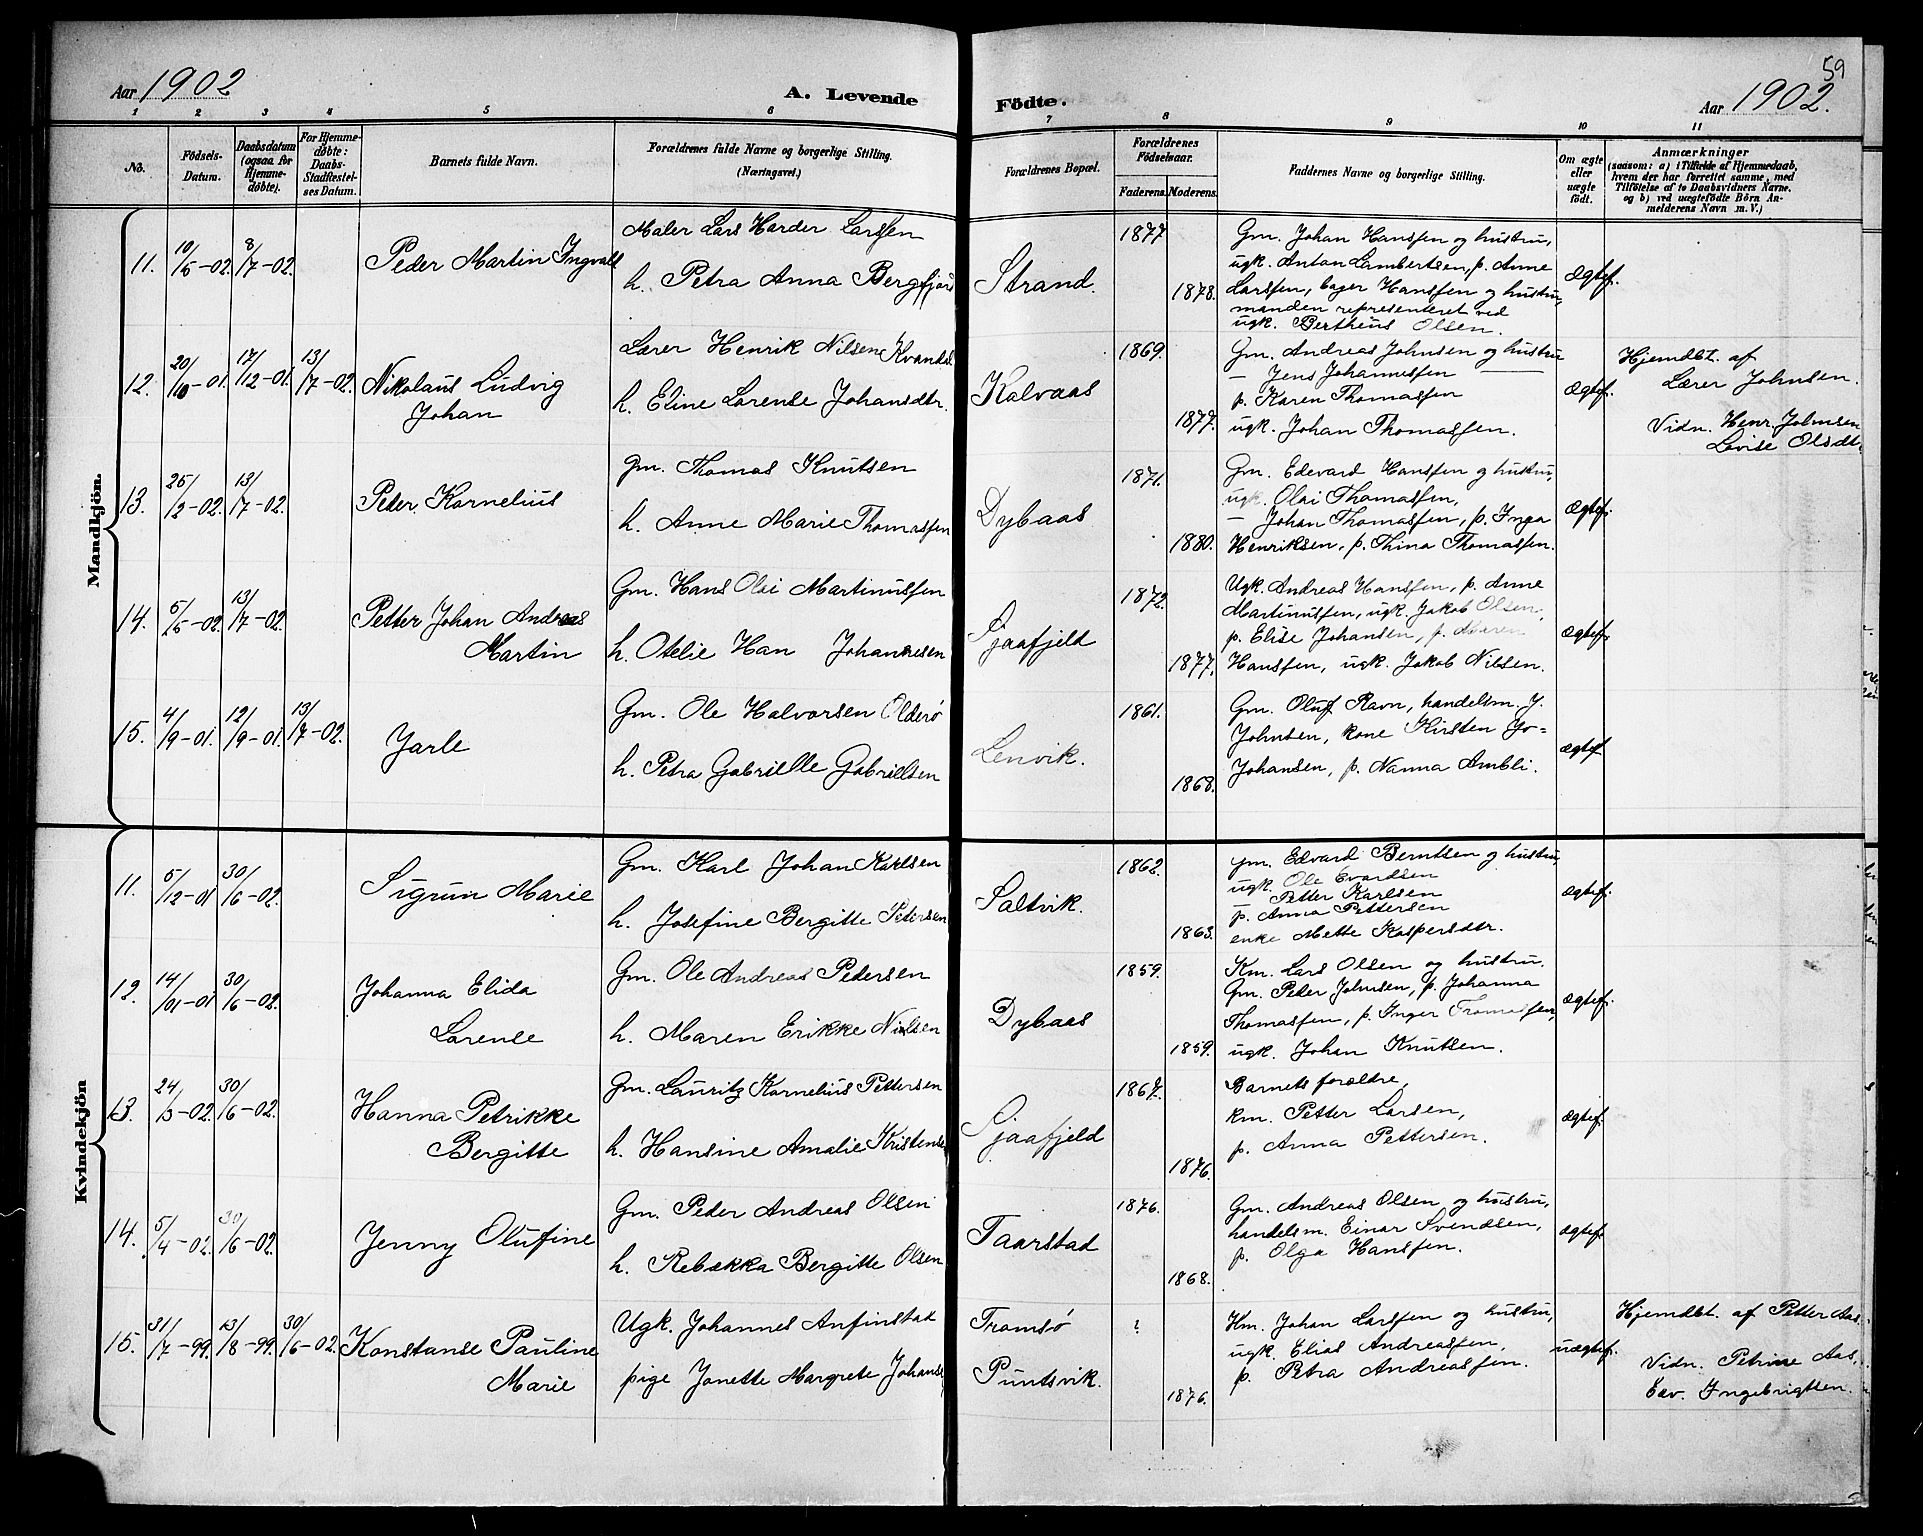 Aar 1902
A. Levende
Födte.
59
Aar 1902.
1 2 3 4 5 6 7 8 9 10 11
No.
Födsels-
Datum.
Daabsdatum
(ogsaa for
Hjemme-
døbte).
For Hjemme-
døbte:
Daabs-
Stadfæstel-
ses Datum.
Barnets fulde Navn.
Forældrenes fulde Navne og borgerlige Stilling.
(Næringsvei.)
Forældrenes Bopæl.
Forældrenes
Födselsaar.
Faderens.
Moderens.
Faddernes Navne og borgerlige Stilling.
Om ægte
eller
uægte
födt.
Anmærkninger
(saasom: a) i Tilfælde af Hjemmedaab,
hvem der har forrettet samme, med
Tilföielse af to Daabsvidners Navne.
og b) ved uægtefödte Börn An-
melderens Navn m. V.)
Mandkjön.
11. 10/5-02. 8/7-02. Peder Martin Ingvald
Maler Lars Harder Larssen
h. Petra Anna Bergfjord
Strand.
1877
1878.
Gm. Johan Hanssen og hustru,
ugk. Anton Lambertsen, p. Anne
Larssen, bager Hanssen og hustru,
manden representeret ved
ugk. Bertheus Olsen.
Ægtef.
12. 20/10-01. 17/12-01. 13/7-02. Nikolaus Ludvig
Johan
Lærer Henrik Nilsen Kvandal
h. Eline Lorense Johansdtr.
Kalvaas
1869.
1877.
Gm. Andreas Johnsen og hustru
— Jens Johannessen —
p. Karen Thomassen
ugk. Johan Thomassen.
Ægtef.
Hjemdbt. af
Lærer Johnsen.
Vidn. Henr. Johnsen
Lovise Olsdt.
13. 25/2-02. 13/7-02. Peder Kornelius
Gm. Thomas Knutsen
h. Anne Marie Thomassen
Dybaas
1871.
1880.
Gm. Edevard Hanssen og hustru,
ugk. Olai Thomassen,
— Johan Thomassen, p. Inga
Henriksen, p. Thina Thomassen.
Ægtef.
14. 5/5-02. 13/7-02. Petter Johan Andreas
Martin
Gm. Hans Olai Martinussen
h. Otelie Han Johannesen
Sjaafjeld
1872.
1877.
Ugk. Andreas Hanssen, p. Anne
Martinussen, ugk. Jakob Olsen,
p. Elise Johansen, p. Maren
Hanssen, ugk. Jakob Nilsen.
Ægtef.
15. 4/9-01. 12/9-01. 13/7-02. Jarle
Gm. Ole Halvorsen Olderø
h. Petra Gabrielle Gabrielsen
Lenvik.
1861.
1868.
Gm. Oluf Ravn, handelsm. J.
Johnsen, kone Kirsten Jo=
Johansen, p. Nanna Ambli.
Ægtef
Kvindekjön
11. 5/12-01 30/6-02. Sigrun Marie
Gm. Karl Johan Karlsen
h. Josefine Bergitte Petersen
Saltvik.
1862.
1863.
Gm. Edvard Berntsen og hustru,
ugk. Ole Evardsen
— Petter Karlsen
p. Anna Pettersen
enke Mette Kaspersdtr.
Ægtef.
12. 14/01-01 30/6-02. Johanna Elida
Lorense
Gm. Ole Andreas Pedersen
h. Maren Erikke Nielsen
Dybaas
1859.
1859.
Km. Lars Olsen og hustru.
Gm. Peder Johnsen, p. Johanna
Thomassen, p. Inger Tromassen,
ugk. Johan Knutsen.
Ægtef.
13. 24/3-02. 30/6-02. Hanna Petrikke
Bergitte
Gm. Lauritz Kornelius Pettersen
h. Hansine Amalie Kristense
Sjaafjeld
1867.
1876.
Barnets forældre,
km. Petter Larsen,
p. Anna Pettersen.
Ægtef.
14. 5/4-02. 30/6-02. Jenny Olufine
Gm. Peder Andreas Olsen
h. Rebækka Bergitte Olsen
Taarstad
1876.
1868.
Gm. Andreas Olsen og hustru,
handelsm. Einar Svendsen,
p. Olga Hanssen.
Ægtef.
15. 31/7-99. 13/8-99. 30/6-02. Konstanse Pauline
Marie
Ugk. Johannes Anfinstad
pige Jonette Margrete Johanse
Tromsø
Puntsvik.
?
1876.
Km. Johan Larssen og hustru,
ugk. Elias Andreassen,
p. Petra Andreassen.
uægtef.
Hjemdbt. af Petter Aas.
Vidn. Petrine Aas,
Edv. Ingebrigtsen.